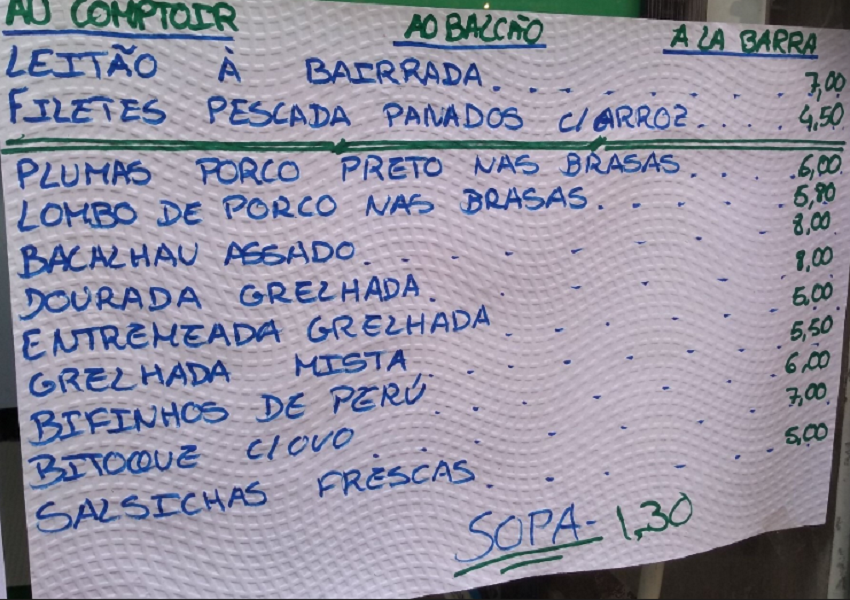 AU COMPTOIR AO BALCÃO A LA BARRA
LEITÃO À BAIRRADA. . . . . . . 7,00
FILETES PESCADA PANADOS C/ARROZ. . . . 4,50
PLUMAS PORCO PRETO NAS BRASAS. . . . 6,00
LOMBO DE PORCO NAS BRASAS. . . . . 5,80
BACALHAU ASSADO. . . . . . . . 8,00
DOURADA GRELHADA. . . . . . . 8,00
ENTREMEADA GRELHADA . . . . . . 5,00
GRELHADA MISTA . . . . . . . 5,50
BIFINHOS DE PERÚ . . . . . . . 6,00
BITOQUE C/OVO . . . . . . . 7,00
SALSICHAS FRESCAS. . . . . . 5,00
SOPA- 1,30